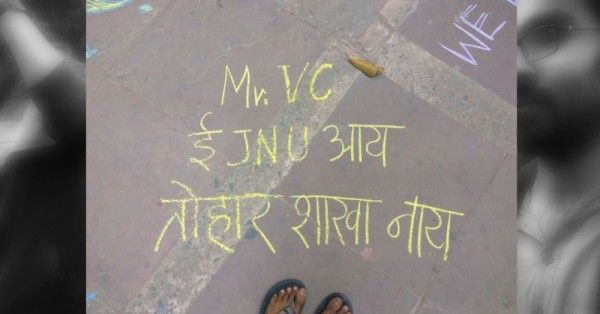 Mr. VC
ई JNU आय
तोहार शाखा नाय
WE